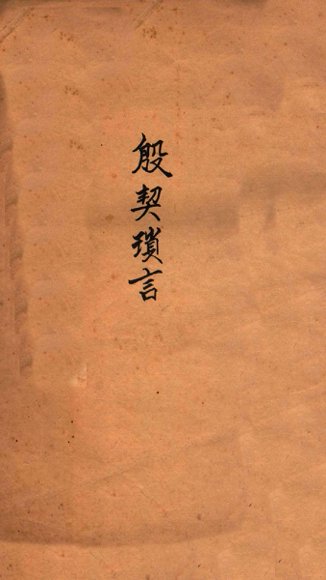 殷契瑣言